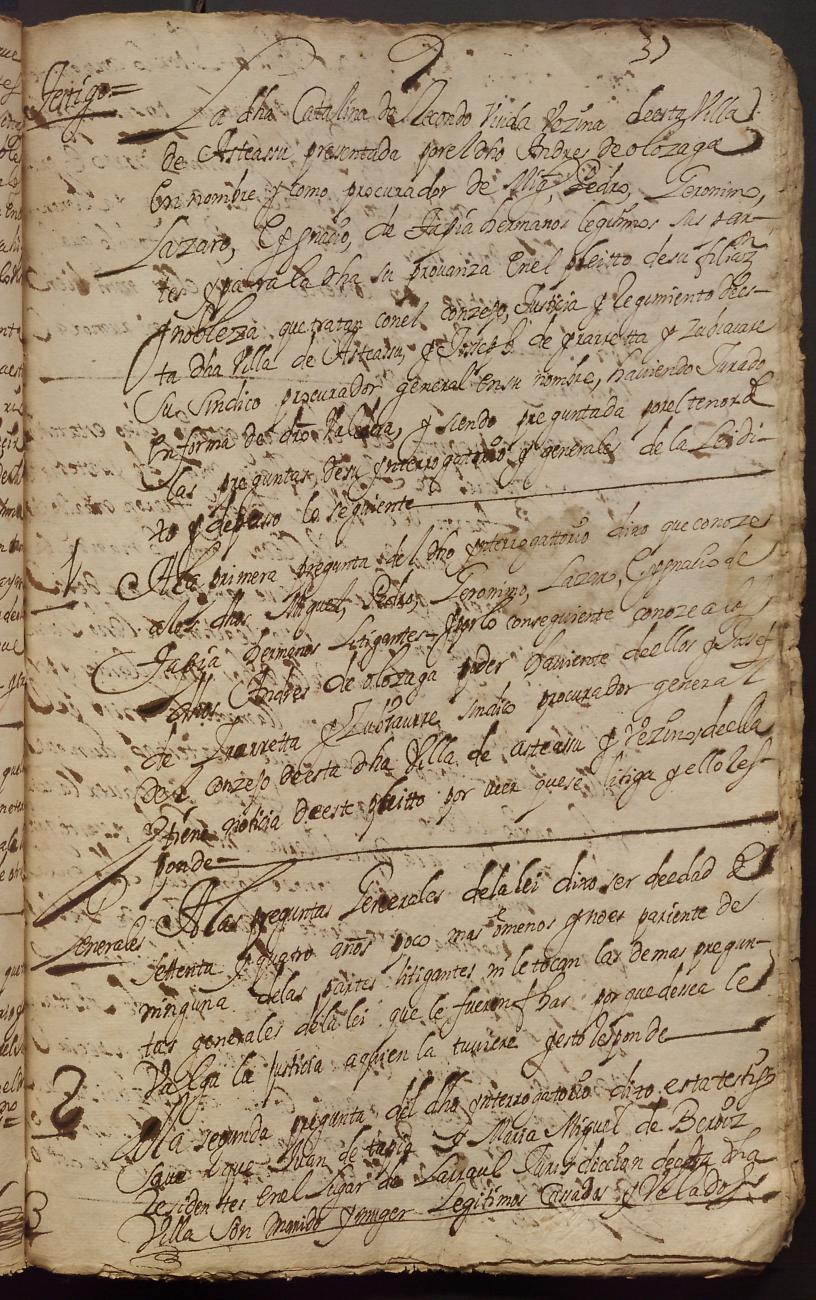 31
Testigo=
La dha Catalina de Recondo Viuda Vezina deesta Villa
de Asteassu, presentada porel dho Andres de olozaga
En nombre y como procurador de Mig, Pedro, Geronimo,
Lazaro, Egnacio, de Tapia hermanos legitimos sus par-
tes y para la dha su provanza En el pleitto desu filiaz
y nobleza que tratan conel conzejo, Justicia y Regimiento dees-
ta dha Villa de Asteassu, y Joseph de Yrarretta y Zubiaurre
Su Sindico procurador general En su nombre, haviendo Jurado
En forma de dro y siendo preguntada porel tenor de
las preguntas, desu ynterrogatorio y generales de la Lei di-
xo y depuso lo seguiente
1 A la primera pregunta del dho ynterrogattorio dixo que conoze
a los dhos Miguel, Pedro, Geronimo, Lazaro, Egnacio de
Tapia hermanos Litigantes y por lo conseguiente conoze a los
dhos Andres de olozaga poder haviente deellos y Josef
de Yrarretta y Zubiaurre sindico procurador general
del conzejo deesta dha Villa de asteassu y Vezinos deella
y tiene noticia deeste pleitto por veer que se litiga y ello Res-
ponde
Generales A las preguntas Generales dela lei dixo ser deedad de
settenta y quatro años poco mas omenos y no es pariente de
ninguna delas partes litigantes ni le tocan las demas pregun-
tas generales dela lei que le fueron fhas por que desea le
Valga la justicia aquien la tuviere yesto Responde
2 A la segunda pregunta del dho ynterrogatorio dixo esta testigo
save que Juan de tapia y Maria Miguel de Beroiz
Residentes En el lugar de Larraul Jurisdiccion deesta dha
Villa Son marido y muger Legitimos Casados y Velados
3